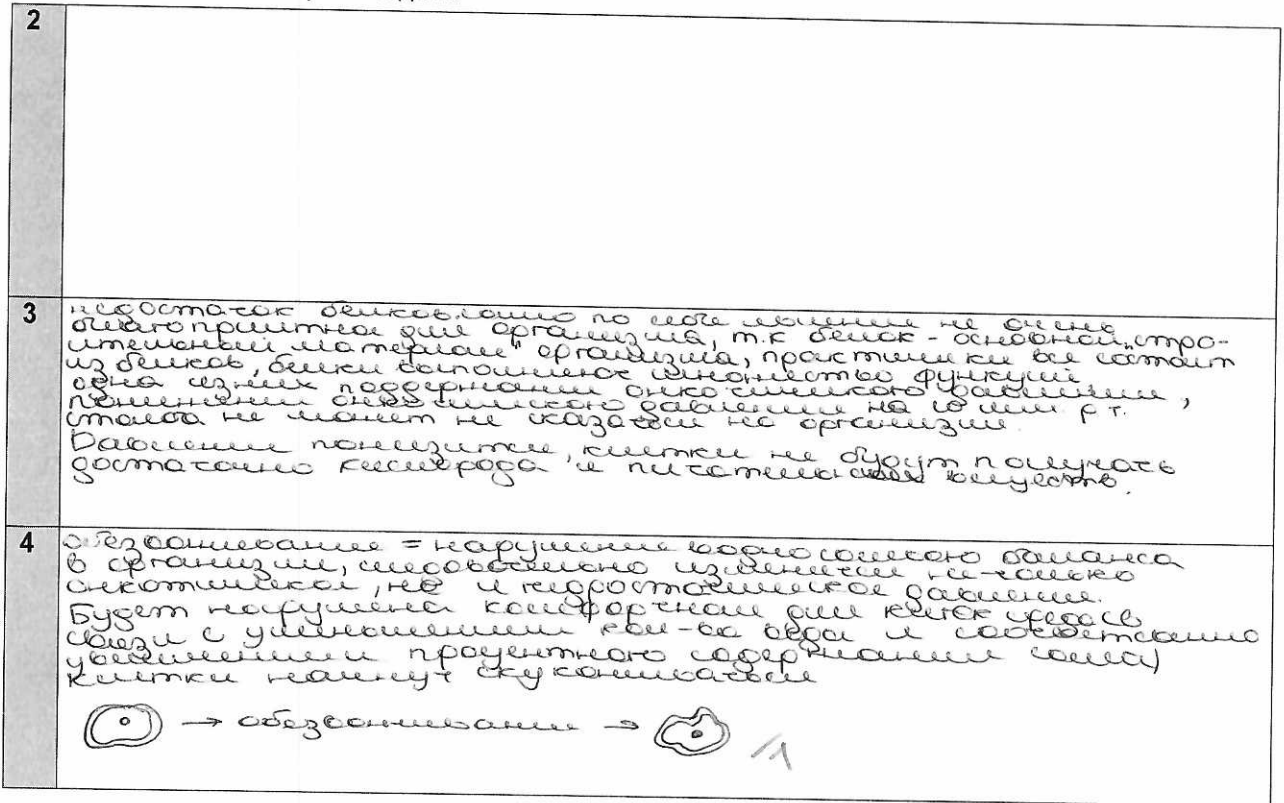 2
3
недостаток белков само по себе явление не очень
благоприятное для организма, т.к белок - основной „стро-
ительный материал" организма, практически все состоит
из белков, белки выполняют множество функций
одна из них поддержании онкотического давления,
понижении онкотического давления на 10 мм рт.
столба не может не сказаться на организм.
Давление понизится, клетки не будут получать
достаточно кислорода и питательных веществ.
4
обезвоживание = нарушение водно солевого баланса
в организм, следовательно изменится не только
онкотическое, но и гидростатическое давление.
Будет нарушена комфортная для клеток среда (в
связи с уменьшением кол-ва воды и соответственно
увеличением процентного содержания соли)
Клетки начнут скукоживаться
→ обезвоживание →
/1